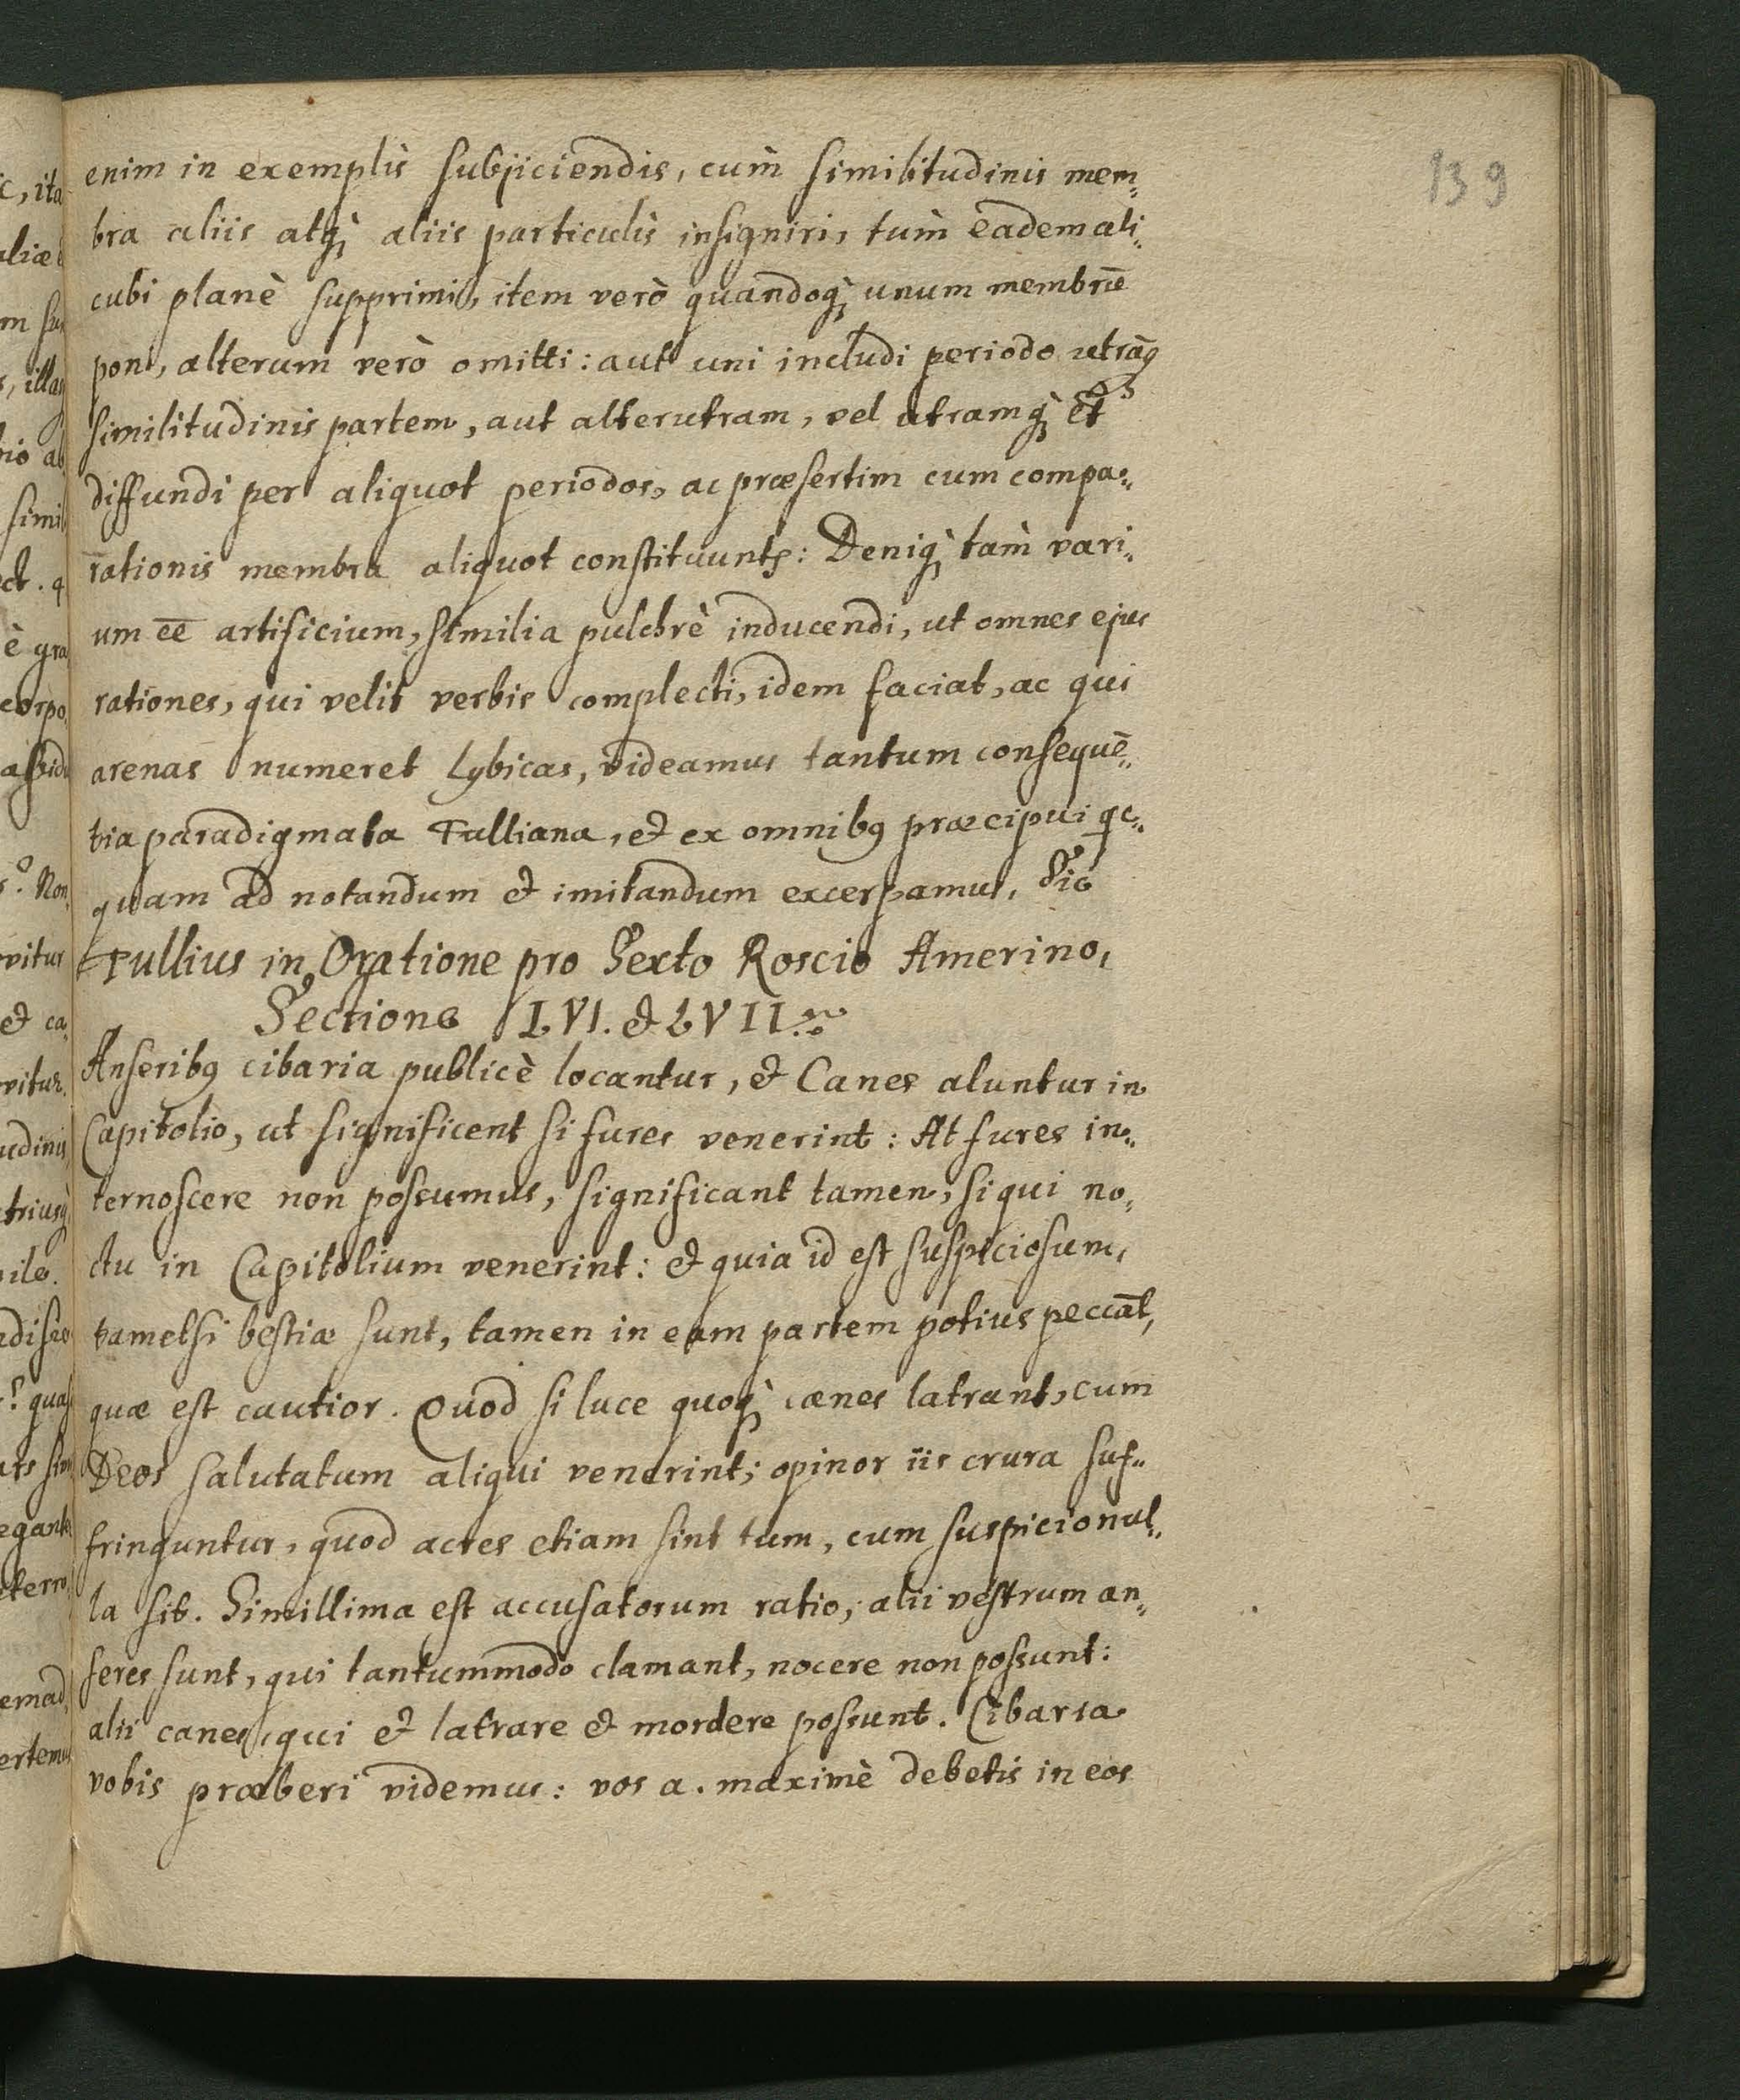 139
enim in exemplis subjiciendis, cum̀ similitudinis mem„
bra aliis atq́; aliis particulis insigniri, tum̀ eadem ali„
cubi planè supprimi, item verò quandoq́; unum membrū
poni, alterum verò omitti: aut uni includi periodo utrāq;
similitudinis partem, aut alterutram, vel utramq́; et
diffundi per aliquot periodos, ac præsertim cum compa„
rationis membra aliquot constituunts: Deniq́; tam̀ vari„
um ēē artificium, similia pulchrè inducendi, ut omnes ejus
rationes, qui velit verbis complecti, idem faciat, ac qui
arenas numeret Lybicas, videamus tantum consequē„
tia paradigmata Tulliana, et ex omnibꝯ præcipui qc„
quam ad notandum et imitandum excerpamus. Sic
Tullius in Oratione pro Sexto Roscio Amerino,
Sectione LVI. et LVII.
Anseribꝯ cibaria publicè locantur, et Canes aluntur in
Capitolio, ut significent si fures venerint: At fures in„
ternoscere non possumus, significant tamen, si qui no„
ctu in Capitolium venerint: et quia id est suspiciosum,
tametsi bestiæ sunt, tamen in eam partem potius peccāt,
quæ est cautior. Quod si luce quoq́; canes latrant, cum
Deos salutatum aliqui venerint; opinor iis crura suf„
fringuntur, quod acres etiam sint tum, cum suspicio nul„
la sit. Simillima est accusatorum ratio, alii vestrum an„
seres sunt, qui tantummodo clamant, nocere non possunt:
alii canes, qui et latrare et mordere possunt. Cibaria
vobis præberi videmus: vos a. maximè debetis in eos